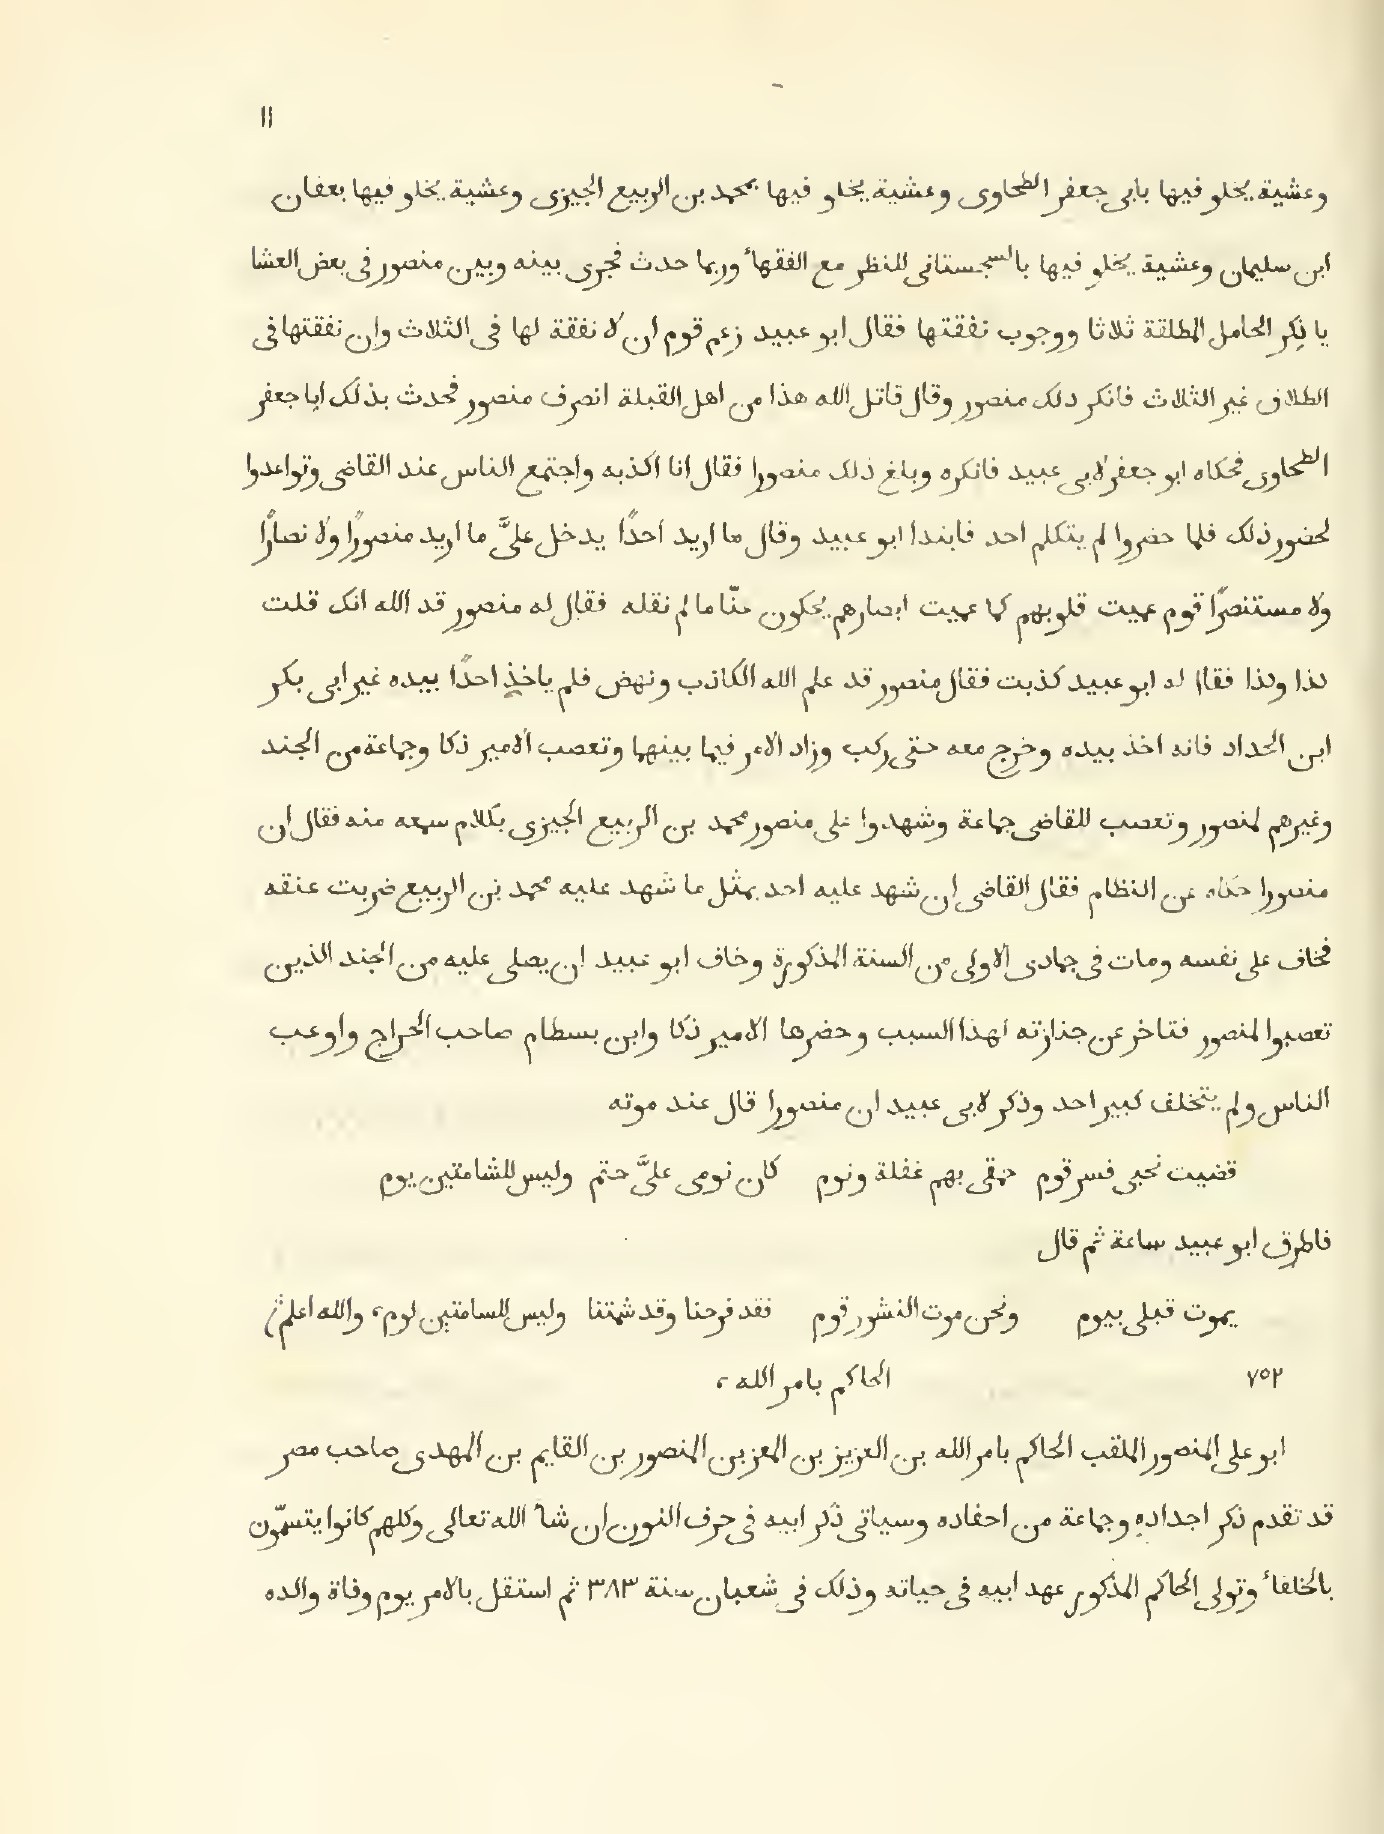 ١١
وعشية يخلو فيها بابى جعفر الطحاوى وعشية يخلو فيها بمحمد بن الربيع الجيزى وعشية يخلو فيها بعفان
ابن سليمان وعشية يخلو فيها بالسجستانى للنظر مع الفقهاء وربما حدث فجرى بينه وبين منصور فى بعض العشا
يا ذكر الحامل المطلقة ثلاثا ووجوب نفقتها فقال ابو عبيد زعم قوم ان لا نفقة لها فى الثلاث وان نفقتها فى
الطلاق غير الثلاث فانكر دلك منصور وقال قاتل الله هذا من اهل القبلة انصرف منصور فحدث بذلك ابا جعفر
الطحاوى فحكاه ابو جعفر لابى عبيد فانكره وبلغ ذلك منصورا فقال انا اكذبه واجتمع الناس عند القاضى وتواعدوا
لحضور ذلك فلما حضروا لم يتكلم احد فابتدا ابو عبيد وقال ما اريد احدًا يدخل علىَّ ما اريد منصورًا ولا نصارًا
ولا مستنصرًا قوم عميت قلوبهم كما عميت ابصارهم يحكون عنّا ما لم نقله فقال له منصور قد الله انك قلت
كذا وكذا فقال له ابو عبيد كذبت فقال منصور قد علم الله الكاذب ونهض فلم ياخذ احدًا بيده غير ابى بكر
ابن الحداد فانه اخذ بيده وخرج معه حتى ركب وزاد الامر فيما بينهما وتعصب الامير ذكا وجماعة من الجند
وغيرهم لمنصور وتعصب للقاضى جماعة وشهدوا على منصور محمد بن الربيع الجيزى بكلام سمعه منه فقال ان
منصورا حكاه عن النظام فقال القاضى ان شهد عليه احد بمثل ما شهد عليه محمد بن الربيع ضربت عنقه
فخاف على نفسه ومات فى جمادى الاولى من السنة المذكورة وخاف ابو عبيد ان يصلى عليه من الجند الذين
تعصبوا لمنصور فتاخر عن جنازته لهذا السبب وحضرها الامير ذكا وابن بسطام صاحب الخراج واوعب
الناس ولم يتخلف كبير احد وذكر لابى عبيد ان منصورا قال عند موته
قضيت نحبى فسر قوم حمقى بهم غفلة ونوم كان نومى علىَّ حتم وليس للشامتين يوم
فاطرق ابو عبيد ساعة ثم قال
يموت قبلى بيوم ونحن موت النشور قوم فقد فرحنا وقد شمتنا وليس للسامتين لوم، والله اعلم
٧٥٢ الحاكم بامر الله،
ابو على المنصور الملقب الحاكم بامر الله بن العزيز بن المعز بن المنصور بن القايم بن المهدى صاحب مصر
قد تقدم ذكر اجداده وجماعة من احفاده وسياتى ذكر ابيه فى حرف النون ان شآ الله تعالى وكلهم كانوا يتسمّون
بالخلفاء وتولى الحاكم المذكور عهد ابيه فى حياته وذلك فى شعبان سنة ٣٨٣ ثم استقل بالامر يوم وفاة والده